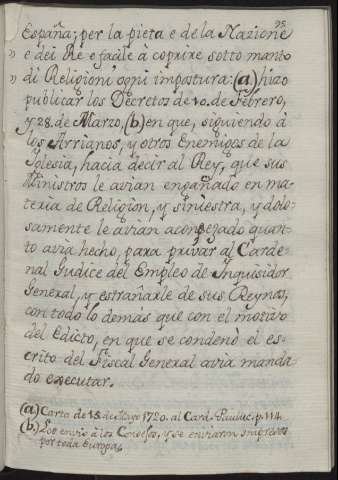 95.
España; per la pieta e de la Nazione
» e dei Re e facile à coprire sotto manto
» di Religioni ogni impostura: (a) hizo
publicar los Decretos de 10. de Febrero,
y 28. de Marzo, (b) en que, siguiendo à
los Arrianos, y otros Enemigos de la
Iglesia, hacia decir al Rey, que sus
Ministros le avian engañado en ma-
teria de Religion, y siniestra, y dolo-
samente le avian aconsejado quan-
to avia hecho, para privar al Carde-
nal Judice del Empleo de Inquisidor
General, y estrañarle de sus Reynos,
con todo lo demàs que con el motivo
del Edicto, en que se condenò el es-
crito del Fiscal General avia manda-
do executar.
(a) Carta de 18. de Mayo 1720. al Card. Pauluc. p. 114.
(b) Los envio à los Consejos, y se enviaron impresos
por toda Europa.